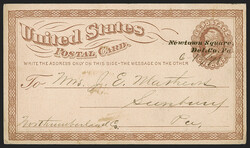 United States
POSTAL CARD.
Newtown Square,
Del. Co. Pa.
WRITE THE ADDRESS ONLY ON THIS SIDE - THE MESSAGE ON THE OTHER
To Mrs. J. E. Mathews
Sunbury
Northumberland Co
Pa